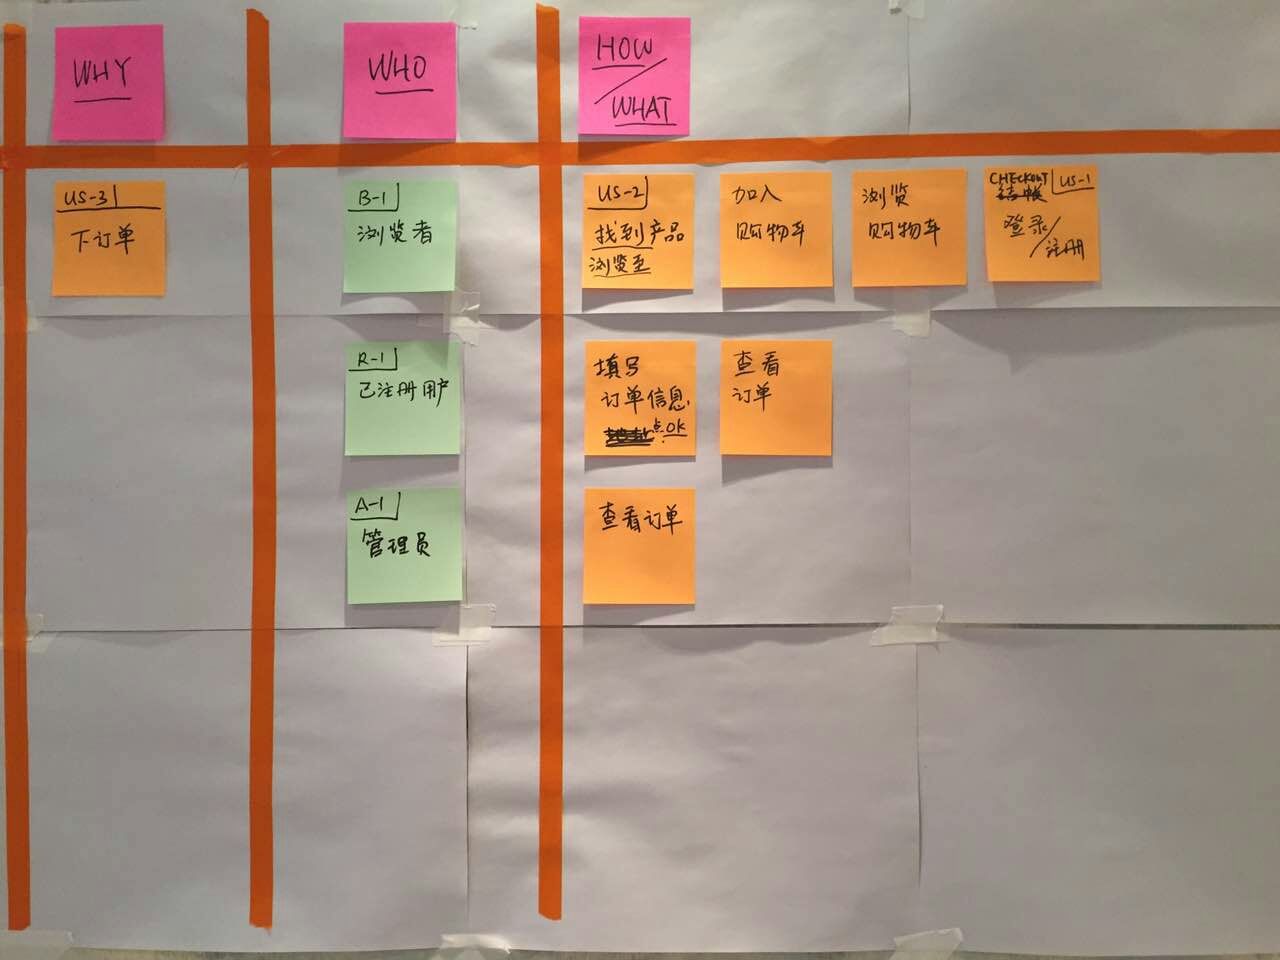 WHY
WHO
HOW
/
WHAT
US-3
下订单
B-1
浏览者
US-2
找到产品
浏览至
加入
购物车
浏览
购物车
CHECKOUT
US-1
登录
/注册
R-1
已注册用户
填写
订单信息
点OK
查看
订单
A-1
管理员
查看订单